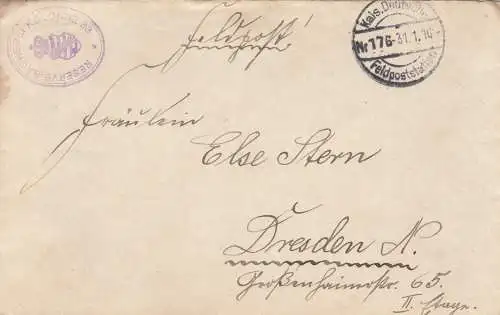 Feldpost!
Kais. Deutsche
Nr 176 - 31.1.16
Feldpoststation
RESERVE
Fräulein
Else Stern
Dresden N.
Großenhainerstr. 65.
II. Etage.